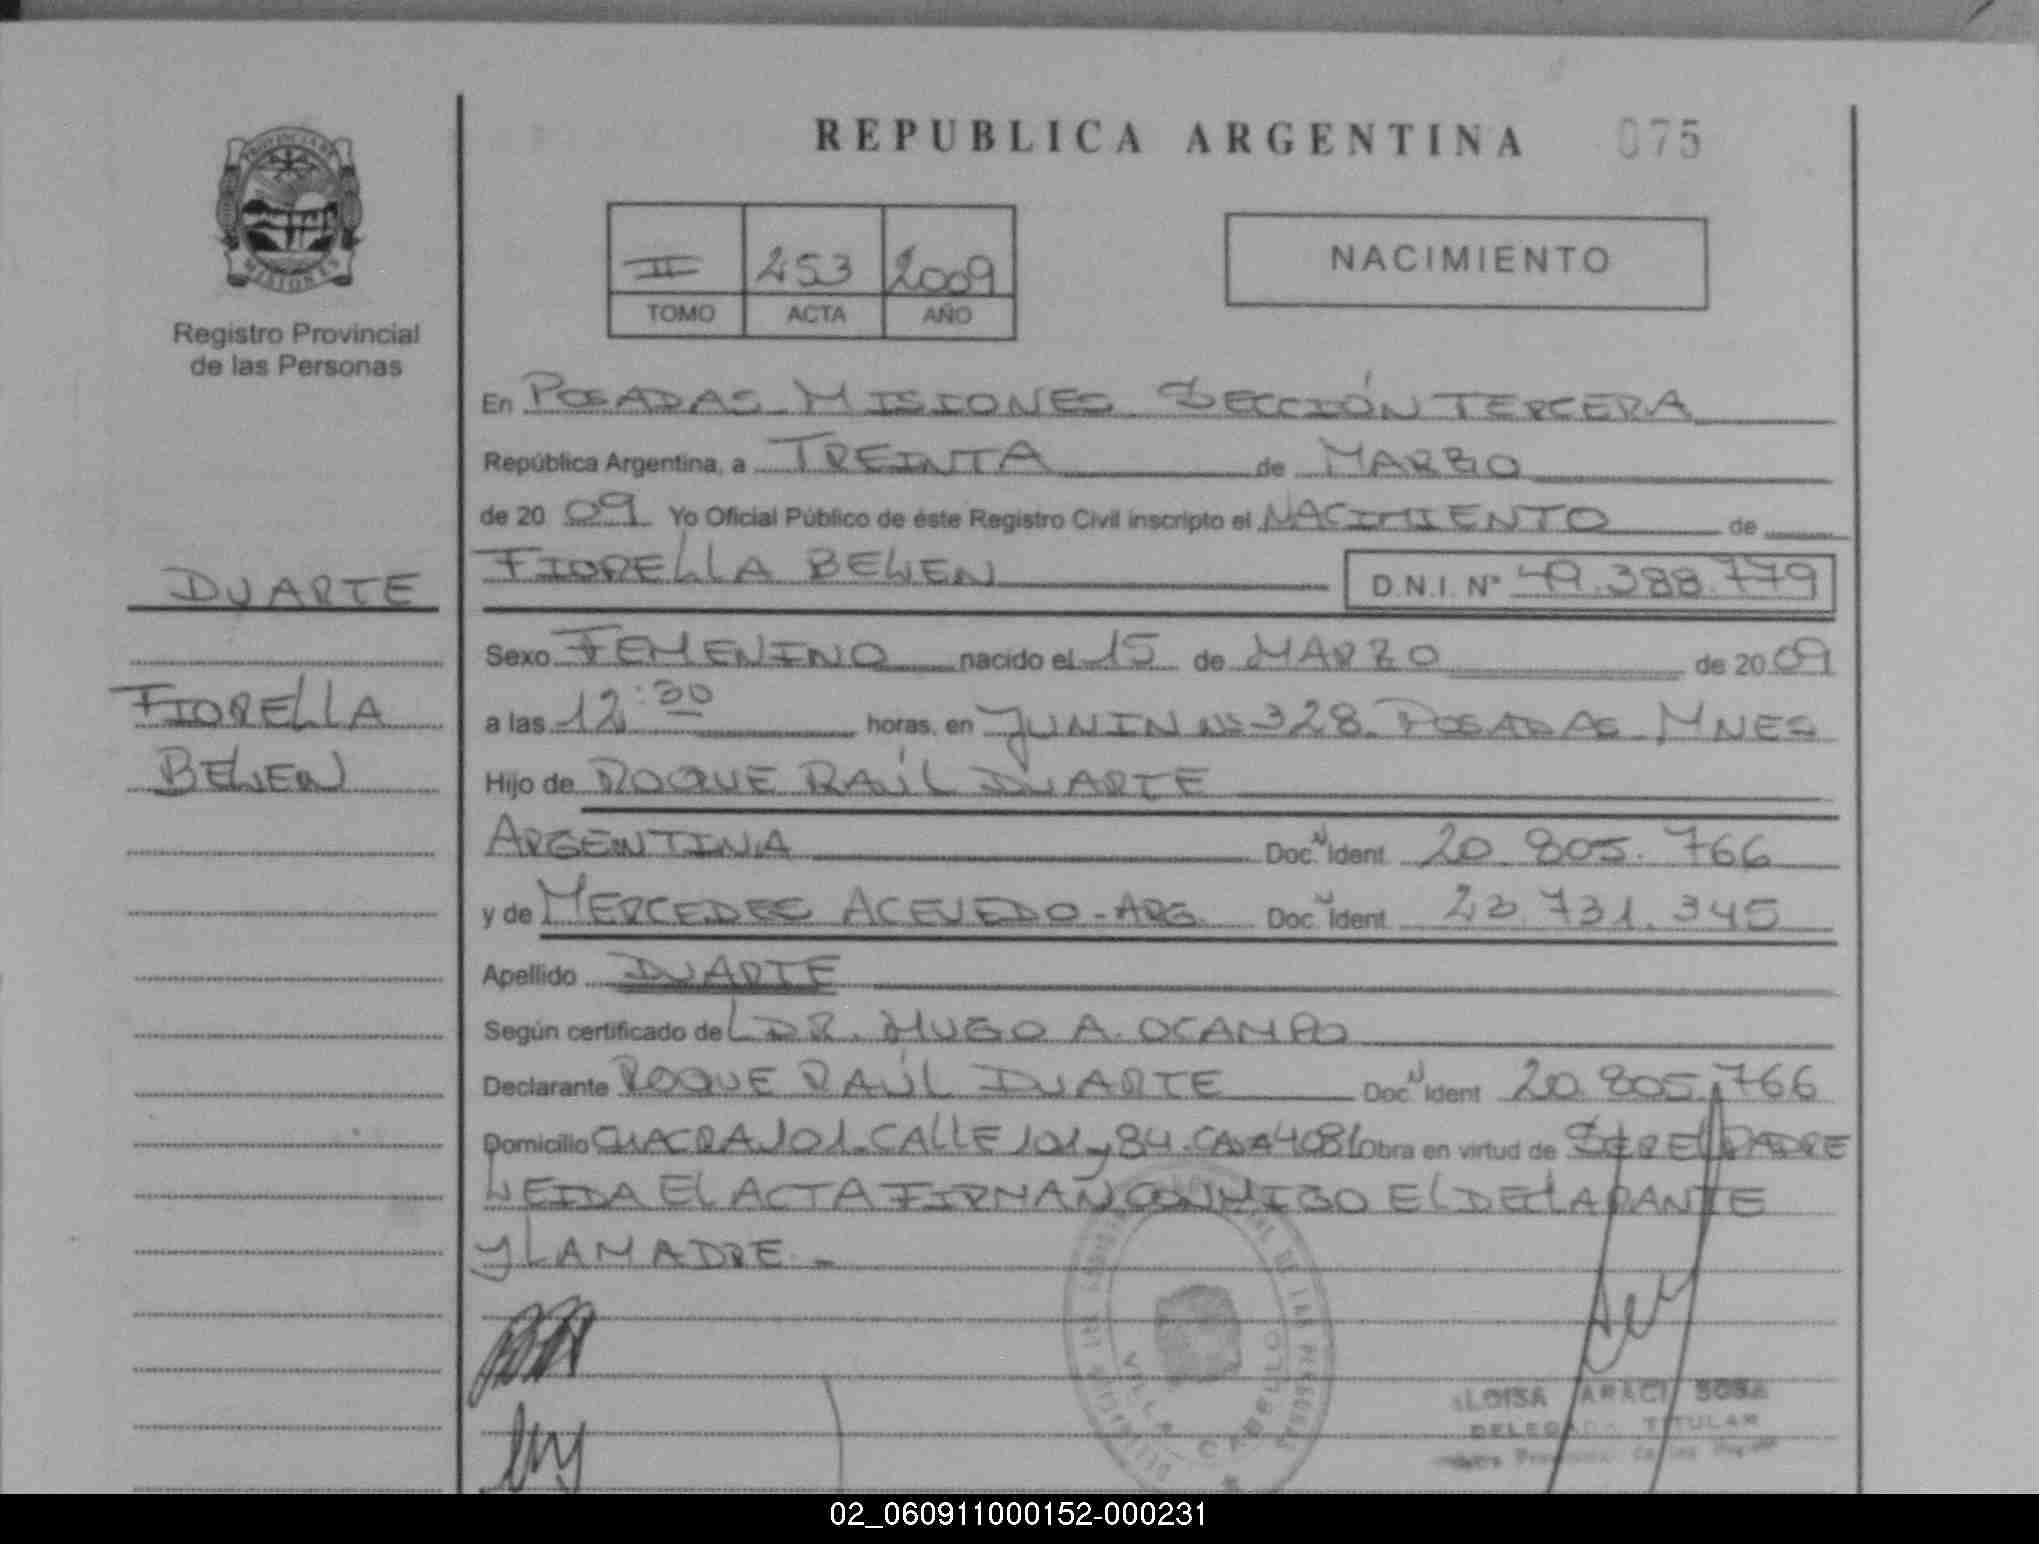 REPUBLICA ARGENTINA 075
PROVINCIA DE
MISIONES
Registro Provincial
de las Personas
II 253 2009
TOMO ACTA AÑO
NACIMIENTO
En POSADAS MISIONES SECCIÓN TERCERA
República Argentina, a TREINTA de MARZO
de 20 09 Yo Oficial Público de éste Registro Civil inscripto el NACIMIENTO de
DUARTE
FIORELLA BELEN D.N.I. Nº 49.388.779
Sexo FEMENINO nacido el 15 de MARZO de 20 09
FIORELLA
a las 12:30 horas, en JUNIN Nº 328. POSADAS MNES
BELEN
Hijo de ROQUE RAÚL DUARTE
ARGENTINA Doc. Ident. 20.805.766
y de MERCEDES ACEVEDO - ARG. Doc. Ident. 23.731.345
Apellido DUARTE
Según certificado de DR. HUGO A. OCAMPO
Declarante ROQUE RAÚL DUARTE Doc. Ident 20.805.766
Domicilio CHACRA 101. CALLE 101 y 84. CASA 4081 Obra en virtud de SER EL PADRE
LEIDA EL ACTA FIRMAN CONMIGO EL DECLARANTE
Y LA MADRE.-
VILLA CABELLO
ARACI SOSA
DELEGADA TITULAR
02_060911000152-000231